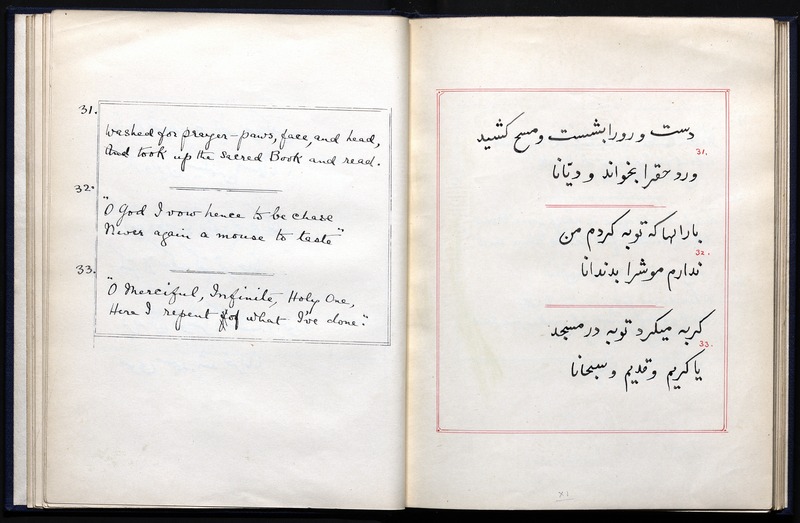 31.
Washed for prayer – paws, face, and head,
And took up the sacred Book and read.
32.
"O God I vow hence to be chase
Never again a mouse to taste"
33.
"O Merciful, Infinite, Holy One,
Here I repent of what I've done."
دست و رو را بشست و مسح کشید
31.
ورد حقرا بخواند و دیّانا
بارالها که توبه کردم من
32.
ندارم موشرا بدندانا
کربه میکرد توبه در مسجد
33.
یا کریم و قدیم و سبحانا
XI